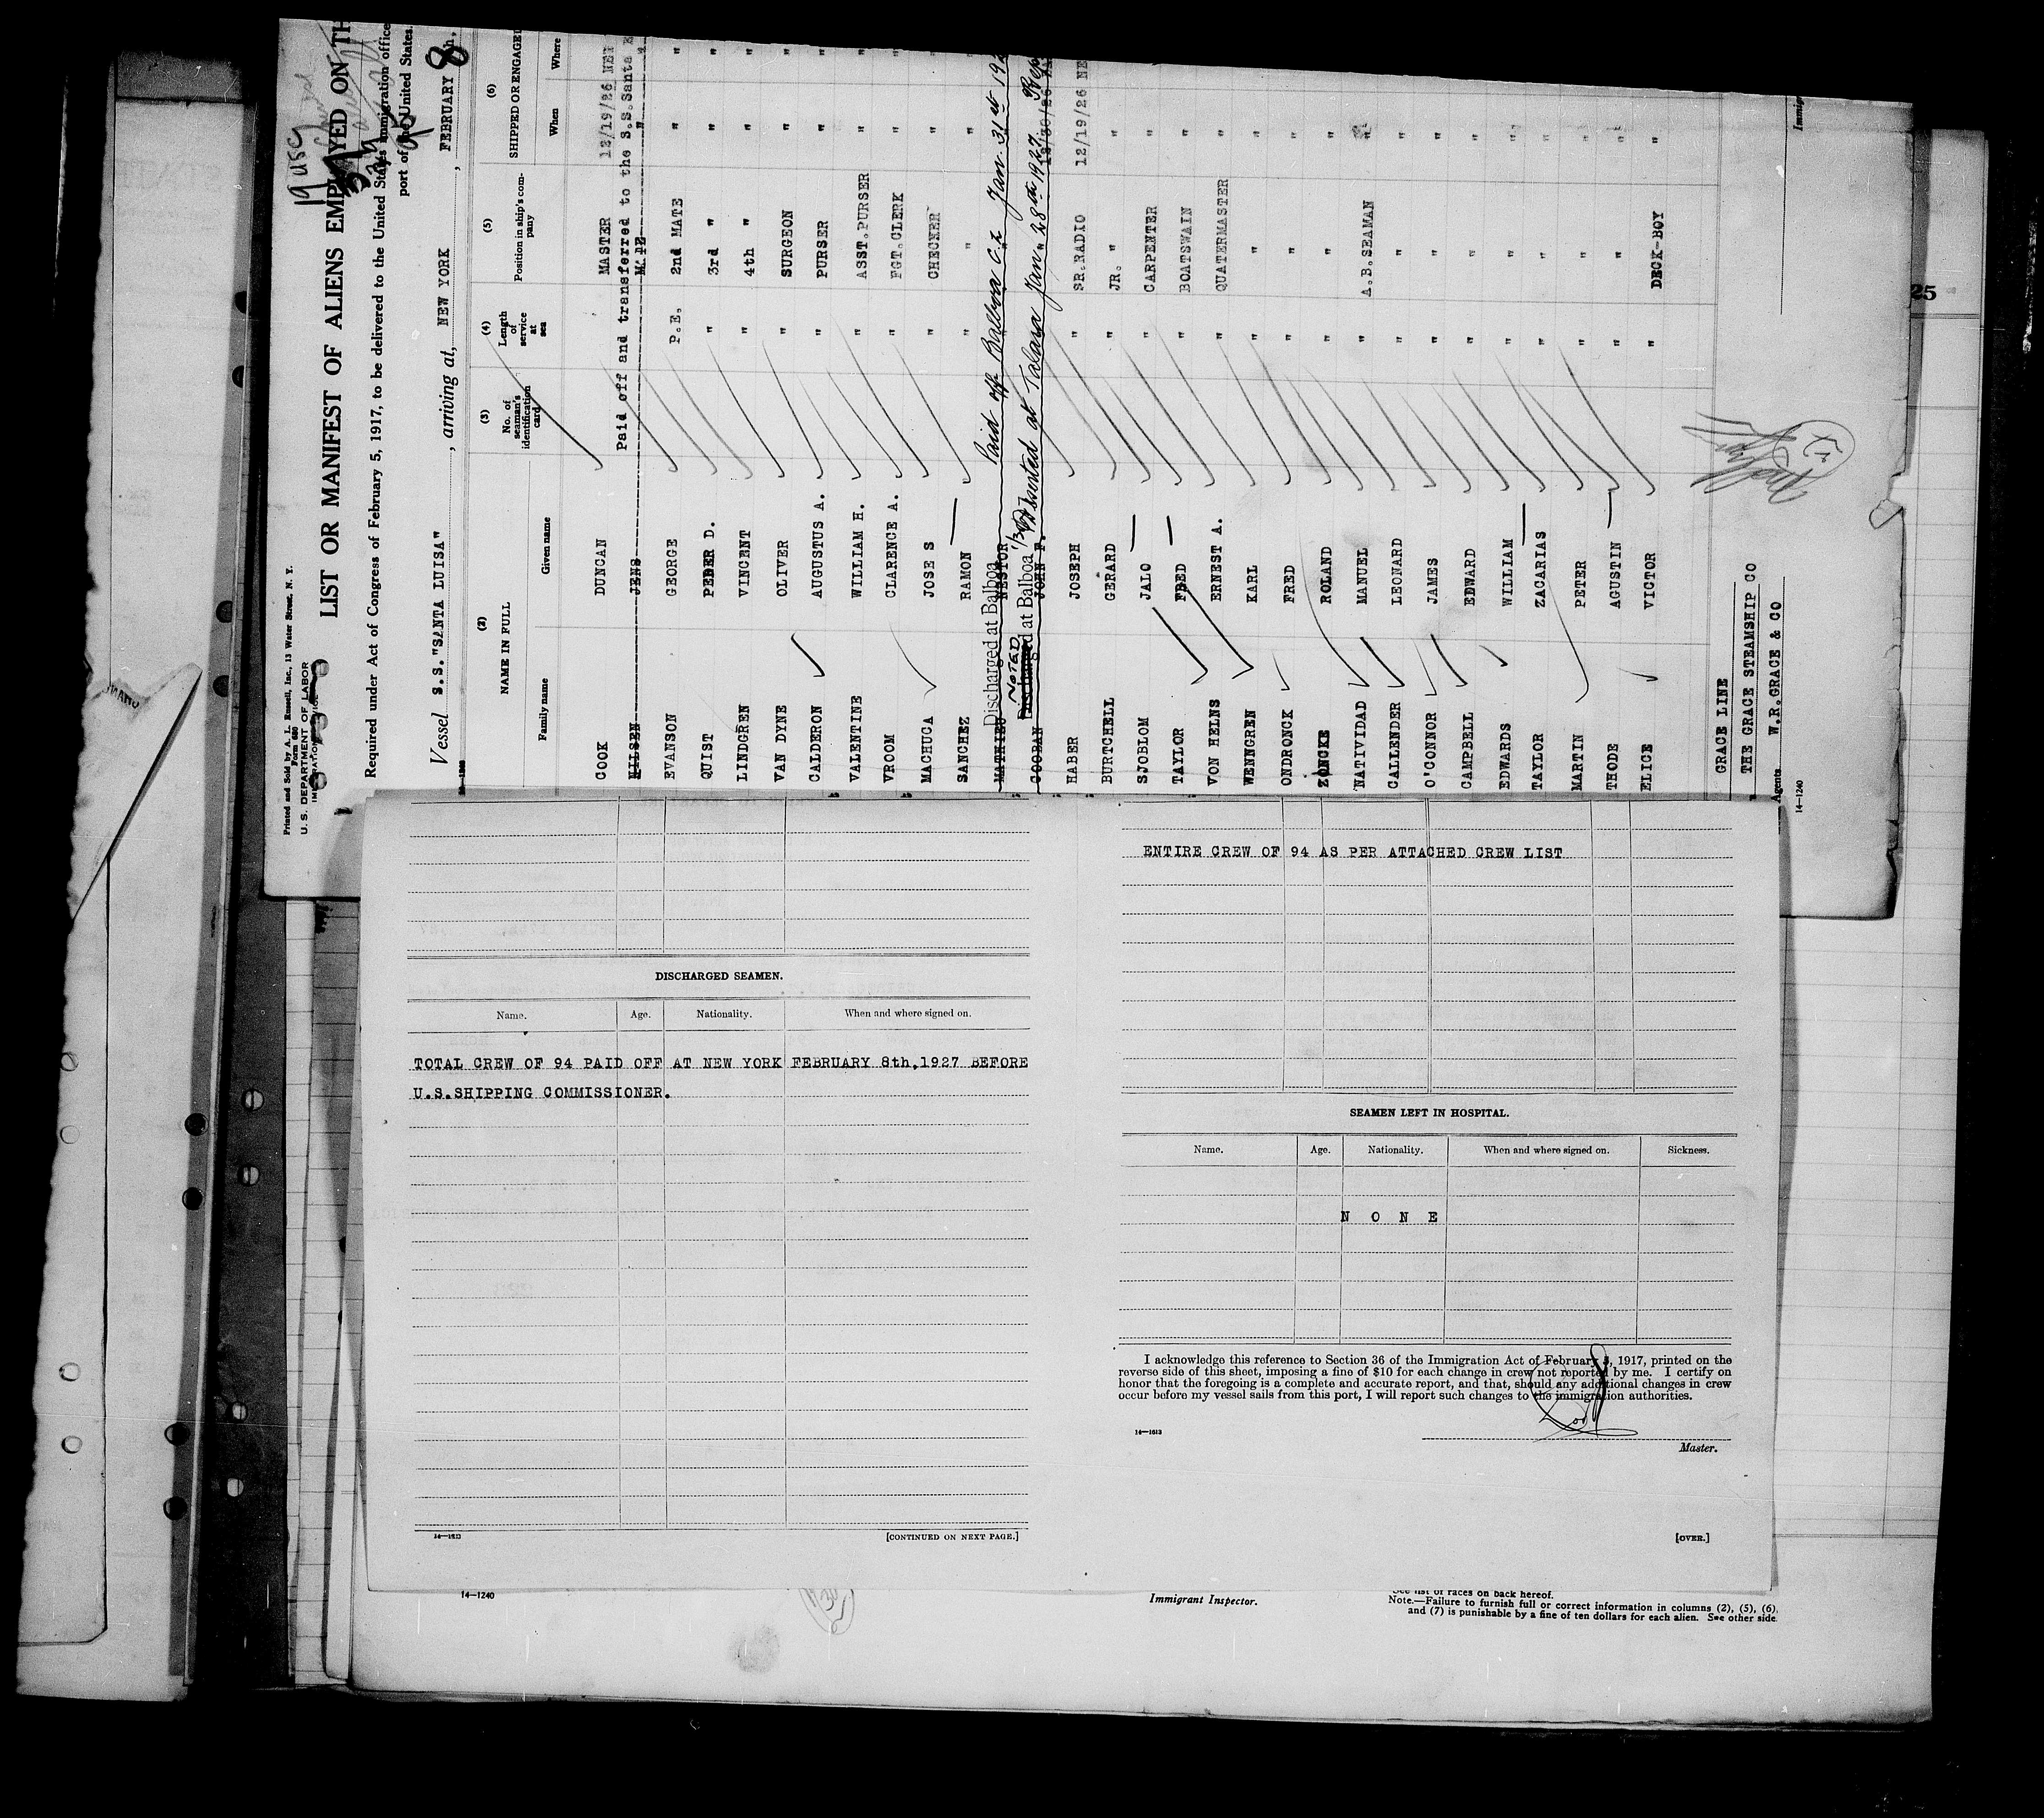 Printed and Sold by A. L. Russell, Inc., 13 Water Street, N. Y.
Form 680
U. S. DEPARTMENT OF LABOR
LIST OR MANIFEST OF ALIENS EMPLOYED ON TH
Required under Act of Congress of February 5, 1917, to be delivered to the United States immigration office
port of the United States.
Vessel S.S."SANTA LUISA", arriving at, NEW YORK, FEBRUARY 8th.
(2) (3) (4) (5) (6)
NAME IN FULL No. of seaman's identification card Length of service at sea Position in ship's company SHIPPED OR ENGAGED
Family name Given name When Where
COOK DUNCAN MASTER 12/19/26 NE
Paid off and transferred to the S.S.Santa E
NILSEN JENS MATE "
EVANSON GEORGE P.E. 2nd MATE " "
QUIST PEDER D. " 3rd " " "
LINDGREN VINCENT " 4th " " "
VAN DYNE OLIVER " SURGEON " "
CALDERON AUGUSTUS A. " PURSER " "
VALENTINE WILLIAM H. " ASST.PURSER " "
VROOM CLARENCE A. " FGT.CLERK " "
MACHUCA JOSE S " CHECKER " "
SANCHEZ RAMON " " " "
Discharged at Balboa Paid off Balboa C.Z Jan. 31st 192
MATHIEU NESTOR
NOTED
Discharged at Balboa Deserted at Talara Jan. 28th 1927.
COOBAN JOHN F. 12/30/26
HABER JOSEPH " SR.RADIO 12/19/26 NE
BURTCHELL GERARD " JR. " " "
SJOBLOM JALO " CARPENTER " "
TAYLOR FRED " BOATSWAIN " "
VON HELNS ERNEST A. " QUATERMASTER " "
WENNGREN KARL " " " "
ONDRONCK FRED " " " "
ZONCKE ROLAND " " " "
NATIVIDAD MANUEL " A.B.SEAMAN " "
CALLENDER LEONARD " " " "
O'CONNOR JAMES " " " "
CAMPBELL EDWARD " " " "
EDWARDS WILLIAM " " " "
TAYLOR ZACARIAS " " " "
MARTIN PETER " " " "
THODE AGUSTIN " " " "
ELICE VICTOR " DECK-BOY "
GRACE LINE
THE GRACE STEAMSHIP CO
Agents W.R.GRACE & CO
14—1240
Immig
25
DISCHARGED SEAMEN.
Name. Age. Nationality. When and where signed on.
TOTAL CREW OF 94 PAID OFF AT NEW YORK FEBRUARY 8th,1927 BEFORE
U.S.SHIPPING COMMISSIONER.
14—1613
[CONTINUED ON NEXT PAGE.]
ENTIRE CREW OF 94 AS PER ATTACHED CREW LIST
SEAMEN LEFT IN HOSPITAL.
Name. Age. Nationality. When and where signed on. Sickness.
N O N E
I acknowledge this reference to Section 36 of the Immigration Act of February 5, 1917, printed on the
reverse side of this sheet, imposing a fine of $10 for each change in crew not reported by me. I certify on
honor that the foregoing is a complete and accurate report, and that, should any additional changes in crew
occur before my vessel sails from this port, I will report such changes to the immigration authorities.
14—1613
Master.
[OVER.]
14—1240
Immigrant Inspector.
See list of races on back hereof.
Note.—Failure to furnish full or correct information in columns (2), (5), (6),
and (7) is punishable by a fine of ten dollars for each alien. See other side.